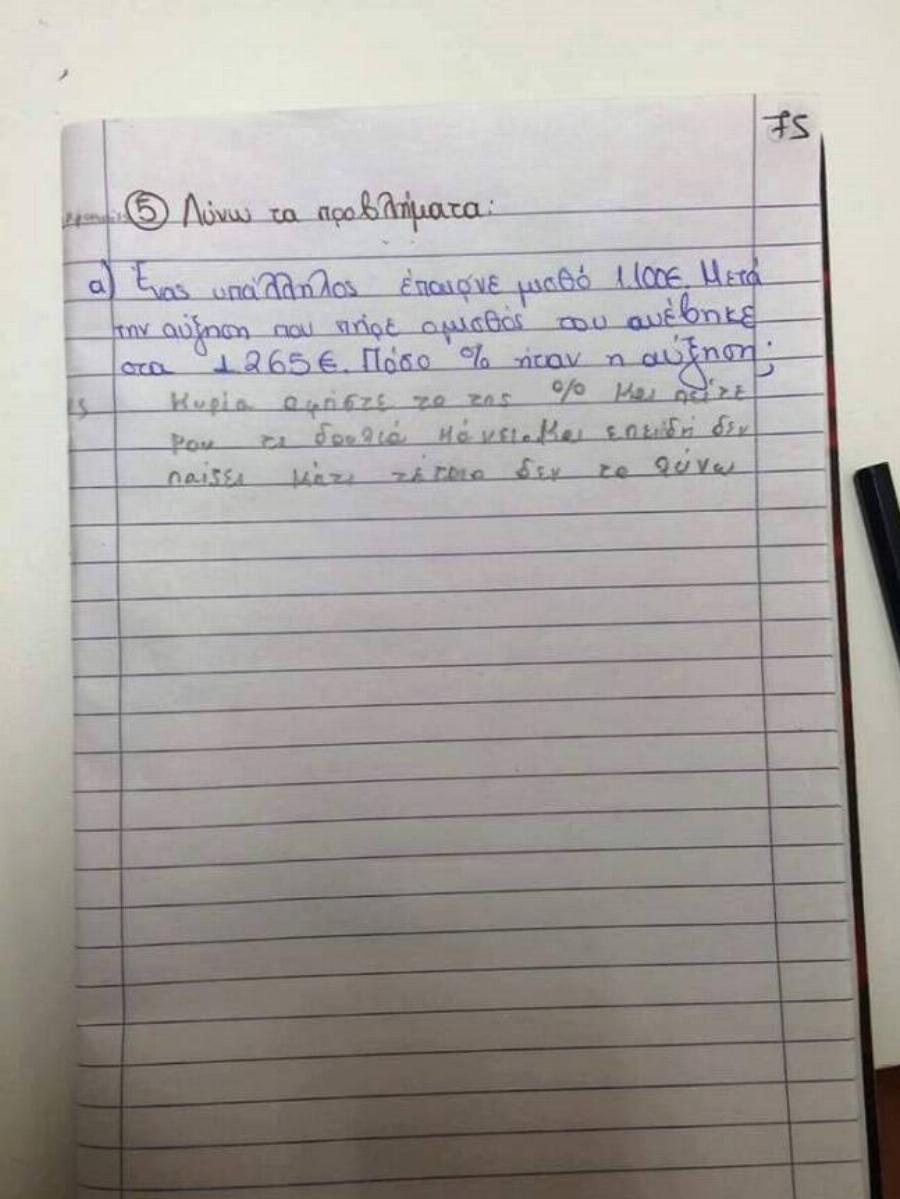 75
⑤ Λύνω τα προβλήματα:
α) Ένας υπάλληλος έπαιρνε μισθό 1.100€. Μετά
την αύξηση που πήρε ο μισθός του ανέβηκε
στα 1265€. Πόσο % ήταν η αύξηση;
Κυρία αφήστε το της % και πείτε
μου τι δουλιά κάνει. Και επειδή δεν
παίζει κάτι τέτοιο δεν το λύνω